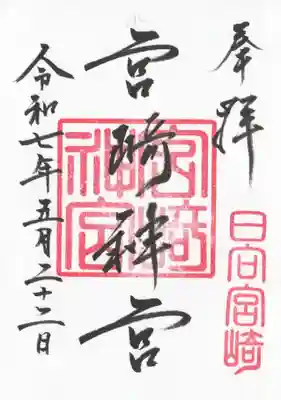 奉拝
日向宮崎
宮崎神宮
宮崎神宮
令和七年五月二十二日